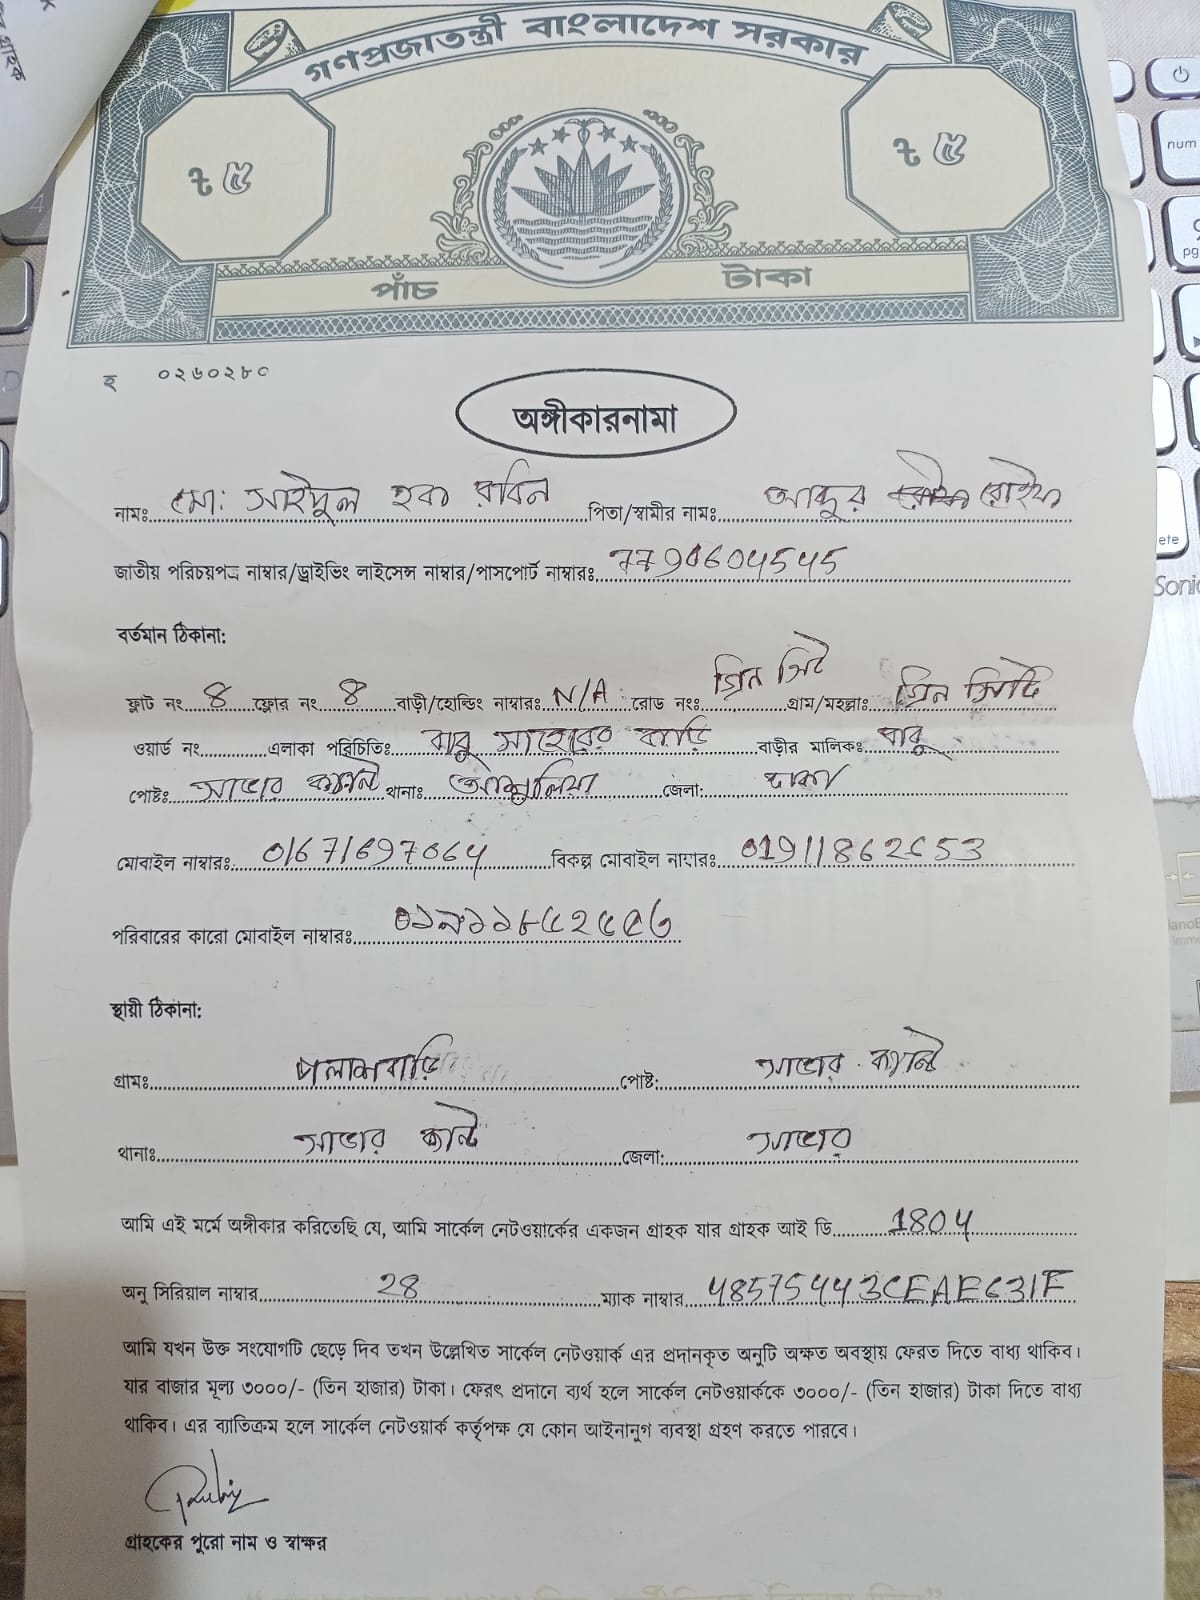 গণপ্রজাতন্ত্রী বাংলাদেশ সরকার
৳ ৫ ৳ ৫
পাঁচ টাকা
অঙ্গীকারনামা
নামঃ মো: সাইদুল হক রবিন পিতা/স্বামীর নামঃ
জাতীয় পরিচয়পত্র নাম্বার/ড্রাইভিং লাইসেন্স নাম্বার/পাসপোর্ট নাম্বারঃ
বর্তমান ঠিকানা:
ফ্লাট নং 8 ফ্লোর নং 8 বাড়ী/হোল্ডিং নাম্বারঃ N/A রোড নংঃ গ্রিন সিটি গ্রাম/মহল্লাঃ গ্রিন সিটি
ওয়ার্ড নং এলাকা পরিচিতিঃ বাবু সাহেবের বাড়ি বাড়ীর মালিকঃ বাবু
পোষ্টঃ সাভার ক্যান্ট থানাঃ আশুলিয়া জেলা: ঢাকা
মোবাইল নাম্বারঃ 01671697064 বিকল্প মোবাইল নাম্বারঃ
পরিবারের কারো মোবাইল নাম্বারঃ
স্থায়ী ঠিকানা:
গ্রামঃ পলাশবাড়ি পোষ্ট: সাভার ক্যান্ট
থানাঃ সাভার ক্যান্ট জেলা: সাভার
আমি এই মর্মে অঙ্গীকার করিতেছি যে, আমি সার্কেল নেটওয়ার্কের একজন গ্রাহক যার গ্রাহক আই ডি 1804
অনু সিরিয়াল নাম্বার 28 ম্যাক নাম্বার
আমি যখন উক্ত সংযোগটি ছেড়ে দিব তখন উল্লেখিত সার্কেল নেটওয়ার্ক এর প্রদানকৃত অনুটি অক্ষত অবস্থায় ফেরত দিতে বাধ্য থাকিব।
যার বাজার মূল্য ৩০০০/- (তিন হাজার) টাকা। ফেরৎ প্রদানে ব্যর্থ হলে সার্কেল নেটওয়ার্ককে ৩০০০/- (তিন হাজার) টাকা দিতে বাধ্য
থাকিব। এর ব্যাতিক্রম হলে সার্কেল নেটওয়ার্ক কর্তৃপক্ষ যে কোন আইনানুগ ব্যবস্থা গ্রহণ করতে পারবে।
গ্রাহকের পুরো নাম ও স্বাক্ষর